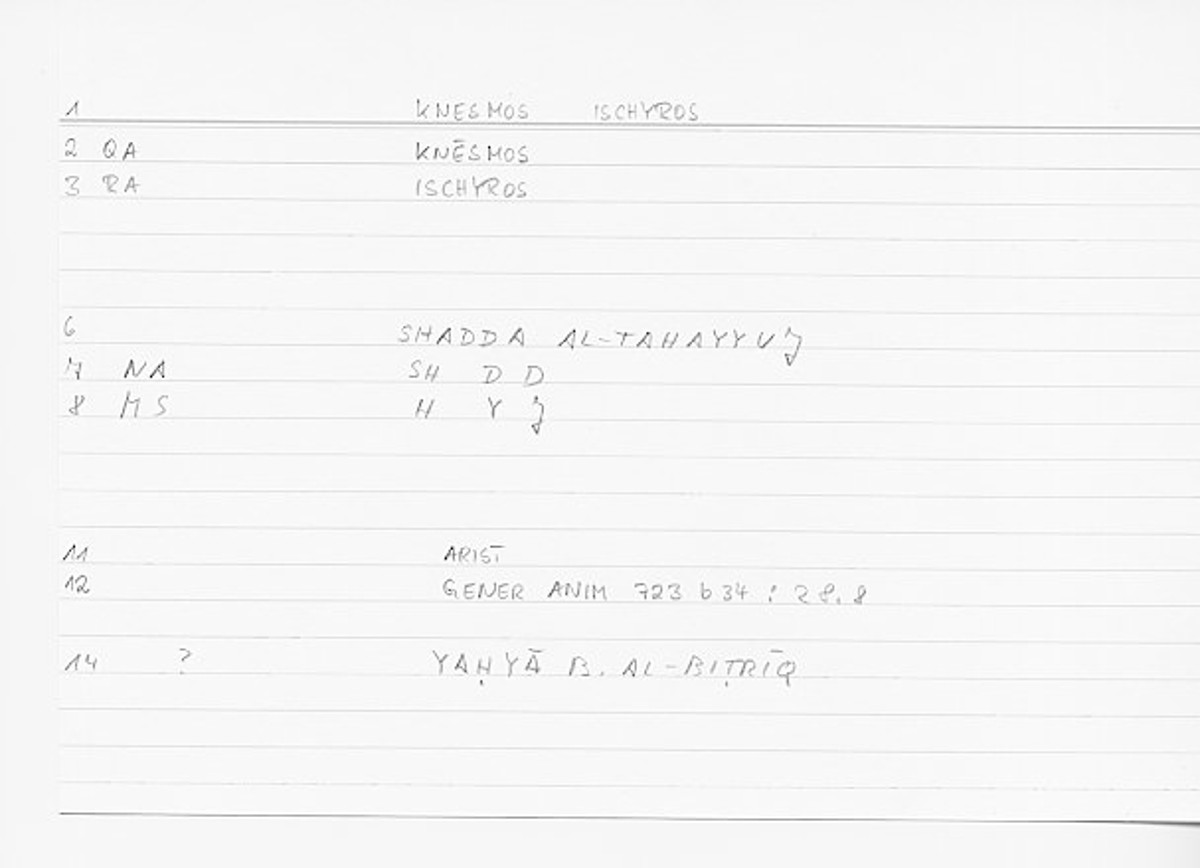 1 KNESMOS ISCHYROS
2 QA KNĒSMOS
3 RA ISCHYROS
6 SHADDA AL-TAHAYYUJ
7 NA SH D D
8 MS H Y J
11 ARIST
12 GENER ANIM 723 b 34 : 28.8
14 ? YAḤYĀ B. AL-BIṬRĪQ